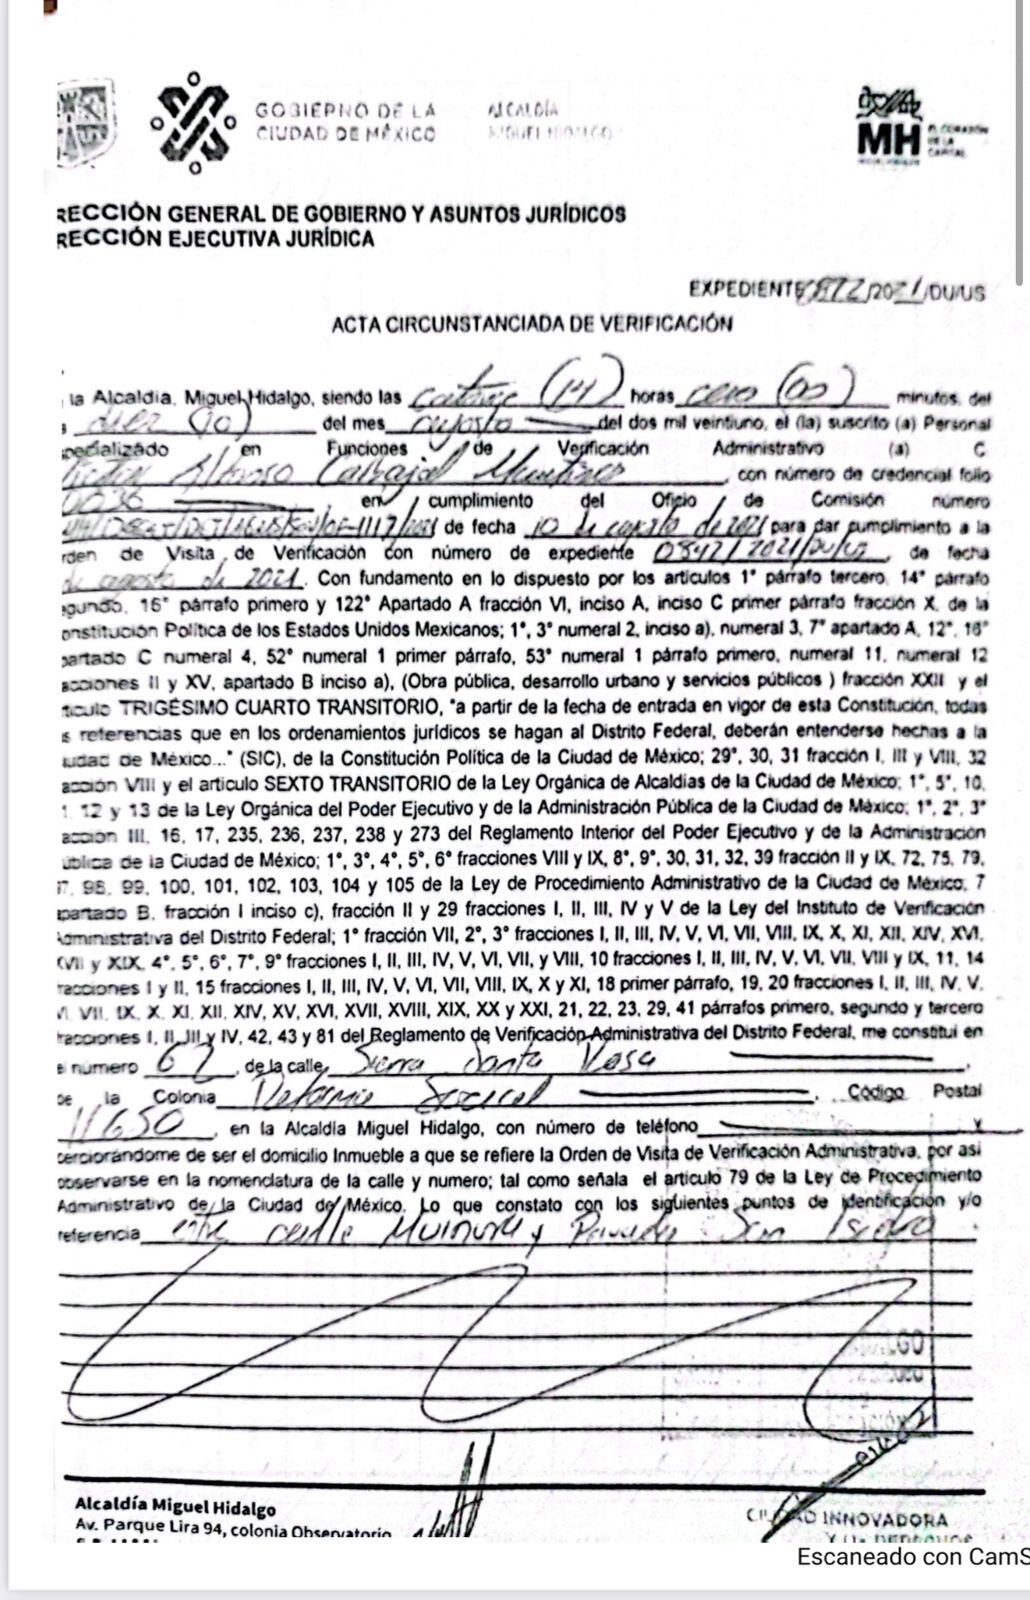 GOBIERNO DE LA
CIUDAD DE MÉXICO
ALCALDÍA
MIGUEL HIDALGO
MH
EL CORAZÓN
DE LA
CAPITAL
RECCIÓN GENERAL DE GOBIERNO Y ASUNTOS JURÍDICOS
RECCIÓN EJECUTIVA JURÍDICA
EXPEDIENTE /2021/DU/US
ACTA CIRCUNSTANCIADA DE VERIFICACIÓN
la Alcaldía, Miguel Hidalgo, siendo las catorce (14) horas cero (00) minutos, del
diez (10) del mes agosto del dos mil veintiuno, el (la) suscrito (a) Personal
pecializado en Funciones de Verificación Administrativo (a) C
Alfonso Carbajal , con número de credencial folio
0036 en cumplimiento del Oficio de Comisión número
de fecha 10 de agosto de 2021 para dar cumplimiento a la
rden de Visita de Verificación con número de expediente 2021/DU/US, de fecha
de agosto de 2021. Con fundamento en lo dispuesto por los artículos 1° párrafo tercero, 14° párrafo
egundo, 16° párrafo primero y 122° Apartado A fracción VI, inciso A, inciso C primer párrafo fracción X, de la
onstitución Política de los Estados Unidos Mexicanos; 1°, 3° numeral 2, inciso a), numeral 3, 7° apartado A, 12°, 16°
partado C numeral 4, 52° numeral 1 primer párrafo, 53° numeral 1 párrafo primero, numeral 11, numeral 12
acciones II y XV, apartado B inciso a), (Obra pública, desarrollo urbano y servicios públicos ) fracción XXII y el
tículo TRIGÉSIMO CUARTO TRANSITORIO, "a partir de la fecha de entrada en vigor de esta Constitución, todas
s referencias que en los ordenamientos jurídicos se hagan al Distrito Federal, deberán entenderse hechas a la
iudad de México..." (SIC), de la Constitución Política de la Ciudad de México; 29°, 30, 31 fracción I, III y VIII, 32
acción VIII y el artículo SEXTO TRANSITORIO de la Ley Orgánica de Alcaldías de la Ciudad de México; 1°, 5°, 10,
1, 12 y 13 de la Ley Orgánica del Poder Ejecutivo y de la Administración Pública de la Ciudad de México; 1°, 2°, 3°
acción III, 16, 17, 235, 236, 237, 238 y 273 del Reglamento Interior del Poder Ejecutivo y de la Administración
ública de la Ciudad de México; 1°, 3°, 4°, 5°, 6° fracciones VIII y IX, 8°, 9°, 30, 31, 32, 39 fracción II y IX, 72, 75, 79,
7, 98, 99, 100, 101, 102, 103, 104 y 105 de la Ley de Procedimiento Administrativo de la Ciudad de México, 7
apartado B, fracción I inciso c), fracción II y 29 fracciones I, II, III, IV y V de la Ley del Instituto de Verificación
Administrativa del Distrito Federal; 1° fracción VII, 2°, 3° fracciones I, II, III, IV, V, VI, VII, VIII, IX, X, XI, XII, XIV, XVI,
XVII y XIX, 4°, 5°, 6°, 7°, 9° fracciones I, II, III, IV, V, VI, VII, y VIII, 10 fracciones I, II, III, IV, V, VI, VII, VIII y IX, 11, 14
racciones I y II, 15 fracciones I, II, III, IV, V, VI, VII, VIII, IX, X y XI, 18 primer párrafo, 19, 20 fracciones I, II, III, IV, V,
VI, VII, IX, X, XI, XII, XIV, XV, XVI, XVII, XVIII, XIX, XX y XXI, 21, 22, 23, 29, 41 párrafos primero, segundo y tercero
racciones I, II, III y IV, 42, 43 y 81 del Reglamento de Verificación Administrativa del Distrito Federal, me constituí en
número 62, de la calle Sierra Santa Rosa
de la Colonia Reforma Social , Código Postal
11650, en la Alcaldía Miguel Hidalgo, con número de teléfono y
cerciorándome de ser el domicilio Inmueble a que se refiere la Orden de Visita de Verificación Administrativa, por así
observarse en la nomenclatura de la calle y numero; tal como señala el artículo 79 de la Ley de Procedimiento
Administrativo de la Ciudad de México. Lo que constato con los siguientes puntos de identificación y/o
referencia entre calle y Privada San Isidro
Alcaldía Miguel Hidalgo
Av. Parque Lira 94, colonia Observatorio
CIUDAD INNOVADORA
Y DE DERECHOS
Escaneado con CamS